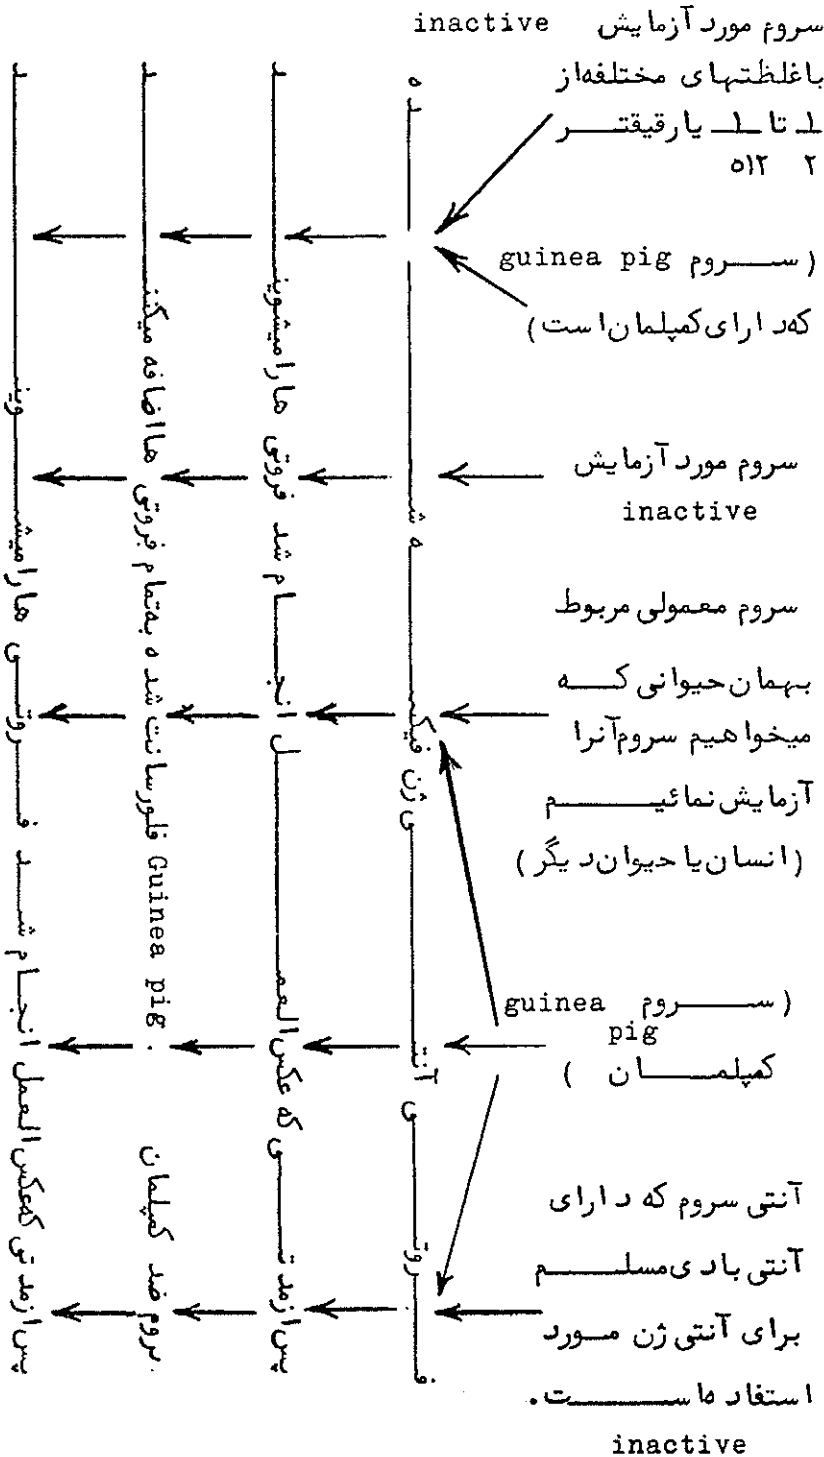 سروم مورد آزمایش inactive
با غلظتهای مختلفه از
۱/۲ تا ۱/۵۱۲ یا رقیقتر
(سروم guinea pig
که دارای کمپلمان است)
سروم مورد آزمایش
inactive
سروم معمولی مربوط
بهمان حیوانی که
میخواهیم سروم آنرا
آزمایش نمائیم
(انسان یا حیوان دیگر)
(سروم guinea
pig
کمپلمان)
آنتی سروم که دارای
آنتی بادی مسلم
برای آنتی ژن مورد
استفاده است.
inactive
فروتی آنتی ژن فیکسه شده
پس از مدتی که عکس العمل انجام شد فروتی ها را میشویند
سروم ضد کمپلمان Guinea pig فلورسانت شده به تمام فروتی ها اضافه میکنند
پس از مدتی که عکس العمل انجام شد فروتی ها را میشویند